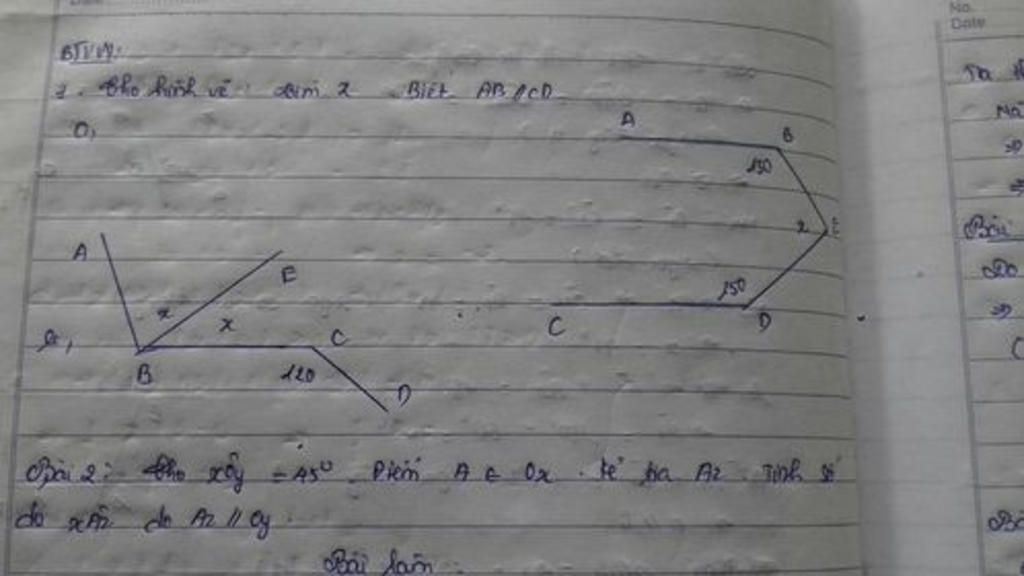 BTVN:
1. Cho hình vẽ: tìm x Biết AB // CD
a,
A
B
130
x
E
150
C
D
A
E
x
x
b,
B
C
120
D
Bài 2: Cho xÔy = 45° Điểm A ∈ Ox. kẻ tia Az. Tính số
đo xÂz do Az // Oy.
Bài làm.
No.
Date
Ta
Mà
⇒
⇒
Bài
Do
⇒